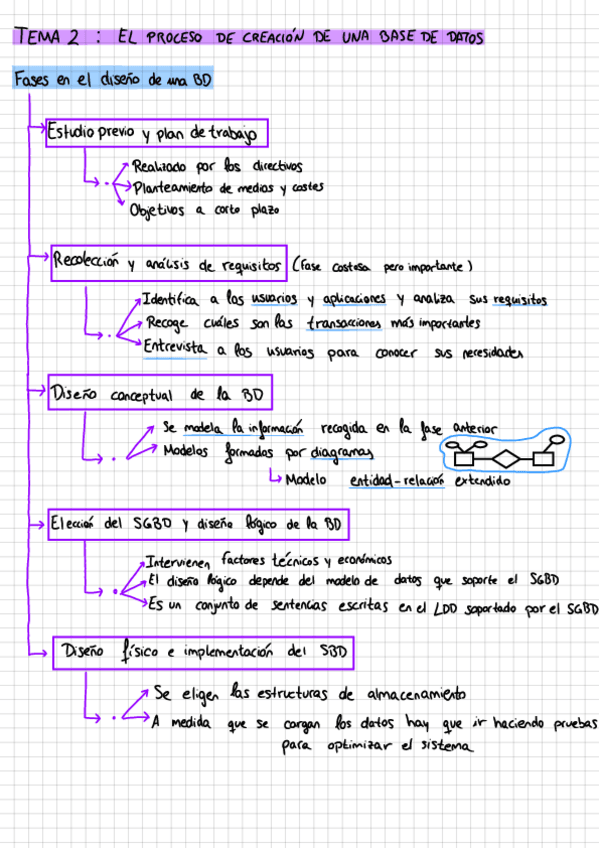 TEMA 2 : EL PROCESO DE CREACIÓN DE UNA BASE DE DATOS
Fases en el diseño de una BD
Estudio previo y plan de trabajo
Realizado por los directivos
Planteamiento de medios y costes
Objetivos a corto plazo
Recolección y análisis de requisitos (fase costosa pero importante)
Identifica a los usuarios y aplicaciones y analiza sus requisitos
Recoge cuáles son las transacciones más importantes
Entrevista a los usuarios para conocer sus necesidades
Diseño conceptual de la BD
Se modela la información recogida en la fase anterior
Modelos formados por diagramas
Modelo entidad-relación extendido
Elección del SGBD y diseño lógico de la BD
Intervienen factores técnicos y económicos
El diseño lógico depende del modelo de datos que soporte el SGBD
Es un conjunto de sentencias escritas en el LDD soportado por el SGBD
Diseño físico e implementación del SBD
Se eligen las estructuras de almacenamiento
A medida que se cargan los datos hay que ir haciendo pruebas
para optimizar el sistema